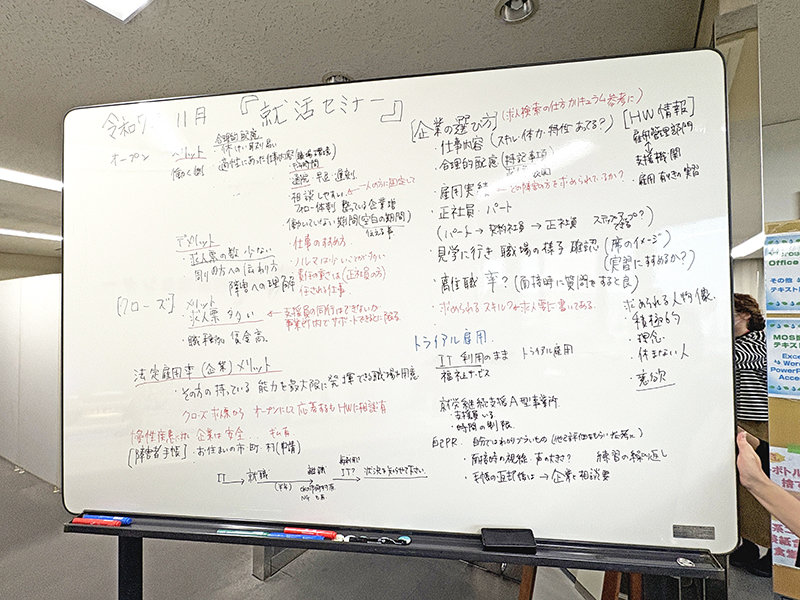 令和7 11月 『就活セミナー』
オープン
メリット
合理的配慮
働く側
・適性にあった仕事内容
通院・早退・遅刻
相談しやすい ←一人の方に固定して
フォロー体制 整っている企業増
働いていない期間(空白の期間)
デメリット
・求人票の数 少ない
・周りの方への伝わり方
障害への理解
・仕事のすすめ方
・ノルマは少いことが多い
・責任の重さは(正社員の方)
任される仕事
[クローズ]
メリット
・求人票 多い
・職種 賃金高
← 支援員の同行はできないが
事業所内でサポートできることに限る
法定雇用率(企業)メリット
・その方の持っている 能力を最大限に発揮できる職場を用意
クローズ求人票から オープンにして応募するもHWに相談有
企業は安全
[障害者手帳] ・お住まいの市町村(申請)
IT → 就職 → → 状況を知らせて下さい
[企業の選び方] (求人検索の仕方カリキュラム参考に)
・仕事内容 (スキル・体力・特性 あってる?)
・合理的配慮 (特記事項)
・雇用実績 ←どの障害の方を求められているか?
・正社員・パート
(パート → 契約社員 → 正社員 ステップアップできる?)
・見学に行き 職場の様子 確認 (席のイメージ)
(実習にすすめるか?)
・離任職 率? (面接時に質問をすると良)
・求められるスキル?←求人票に書いてある
[HW情報]
雇用管理部門
支援機関
雇用前提の実習
求められる人物像
・積極的
・理念
・休まない人
・意欲
トライアル雇用
IT 利用のまま トライアル雇用
福祉サービス
就労継続支援A型事業所
・支援員いる
・時間の制限
自己PR 自分ではわかりづらいもの (他己評価をもらい 参考に)
・面接時の視線・声の大きさ? 練習の繰り返し
→ 企業と相談要
Office
その他
テキスト
MOS
テキスト
Exce
Word
Power
Acce
ボトル
捨て